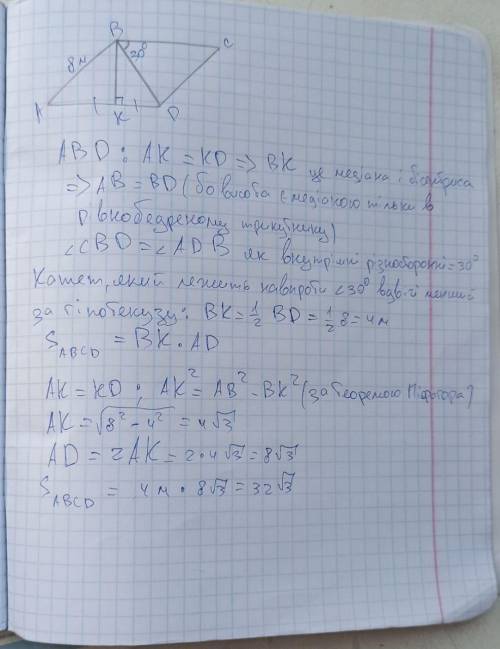 B
C
8м
30°
A
K
D
ABD: AK = KD => BK це медіана і бісектриса
=> AB = BD (бо висота є медіаною тільки в
рівнобедреному трикутнику)
∠CBD = ∠ADB як внутрішні різносторонні = 30°
Катет, який лежить навпроти ∠30° вдвічі менший
за гіпотенузу: BK = 1/2 BD = 1/2 8 = 4м
S_ABCD = BK · AD
AK = KD ; AK² = AB² - BK² (за теоремою Піфагора)
AK = √(8² - 4²) = 4√3
AD = 2AK = 2 · 4√3 = 8√3
S_ABCD = 4м · 8√3 = 32√3